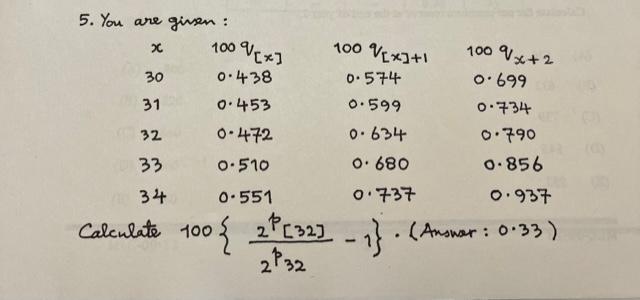 5. You are given :
x 100 q[x] 100 q[x]+1 100 qx+2
30 0.438 0.574 0.699
31 0.453 0.599 0.734
32 0.472 0.634 0.790
33 0.510 0.680 0.856
34 0.551 0.737 0.937
Calculate 100 { 2p[32] / 2p32 - 1 } . (Answer : 0.33)